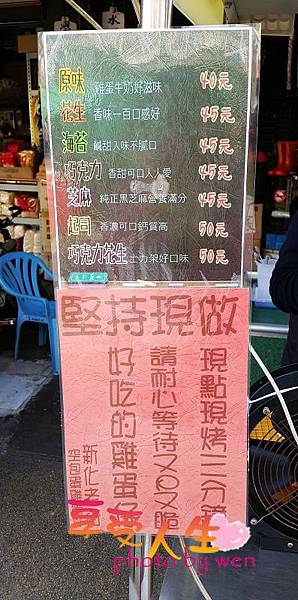 原味 雞蛋牛奶好滋味 40元
花生 香味一百口感好 45元
海苔 鹹甜入味不膩口 45元
巧克力 香甜可口人人愛 45元
芝麻 純正黑芝麻營養滿分 45元
起司 香濃可口鈣質高 50元
巧克力花生 士力架好口味 50元
堅持現做
現點現烤三分鐘
請耐心等待又Q又脆
好吃的雞蛋
新化老
享受人生
photo by wen